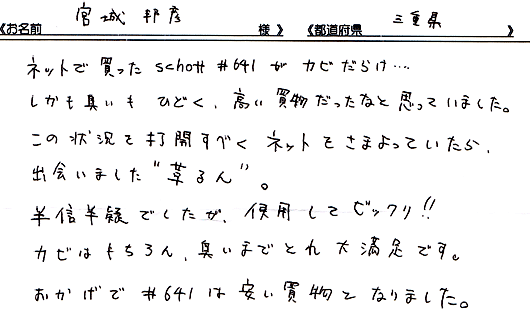 《お名前 宮城 邦彦 様》 《都道府県 三重県 》
ネットで買った schott #641 が カビだらけ…
しかも臭いも ひどく、高い買物だったなと思っていました。
この状況を打開すべく ネットをさまよっていたら、
出会いました "革るん"。
半信半疑でしたが、使用してビックリ!!
カビはもちろん、臭いまでとれ大満足です。
おかげで #641は安い買物となりました。